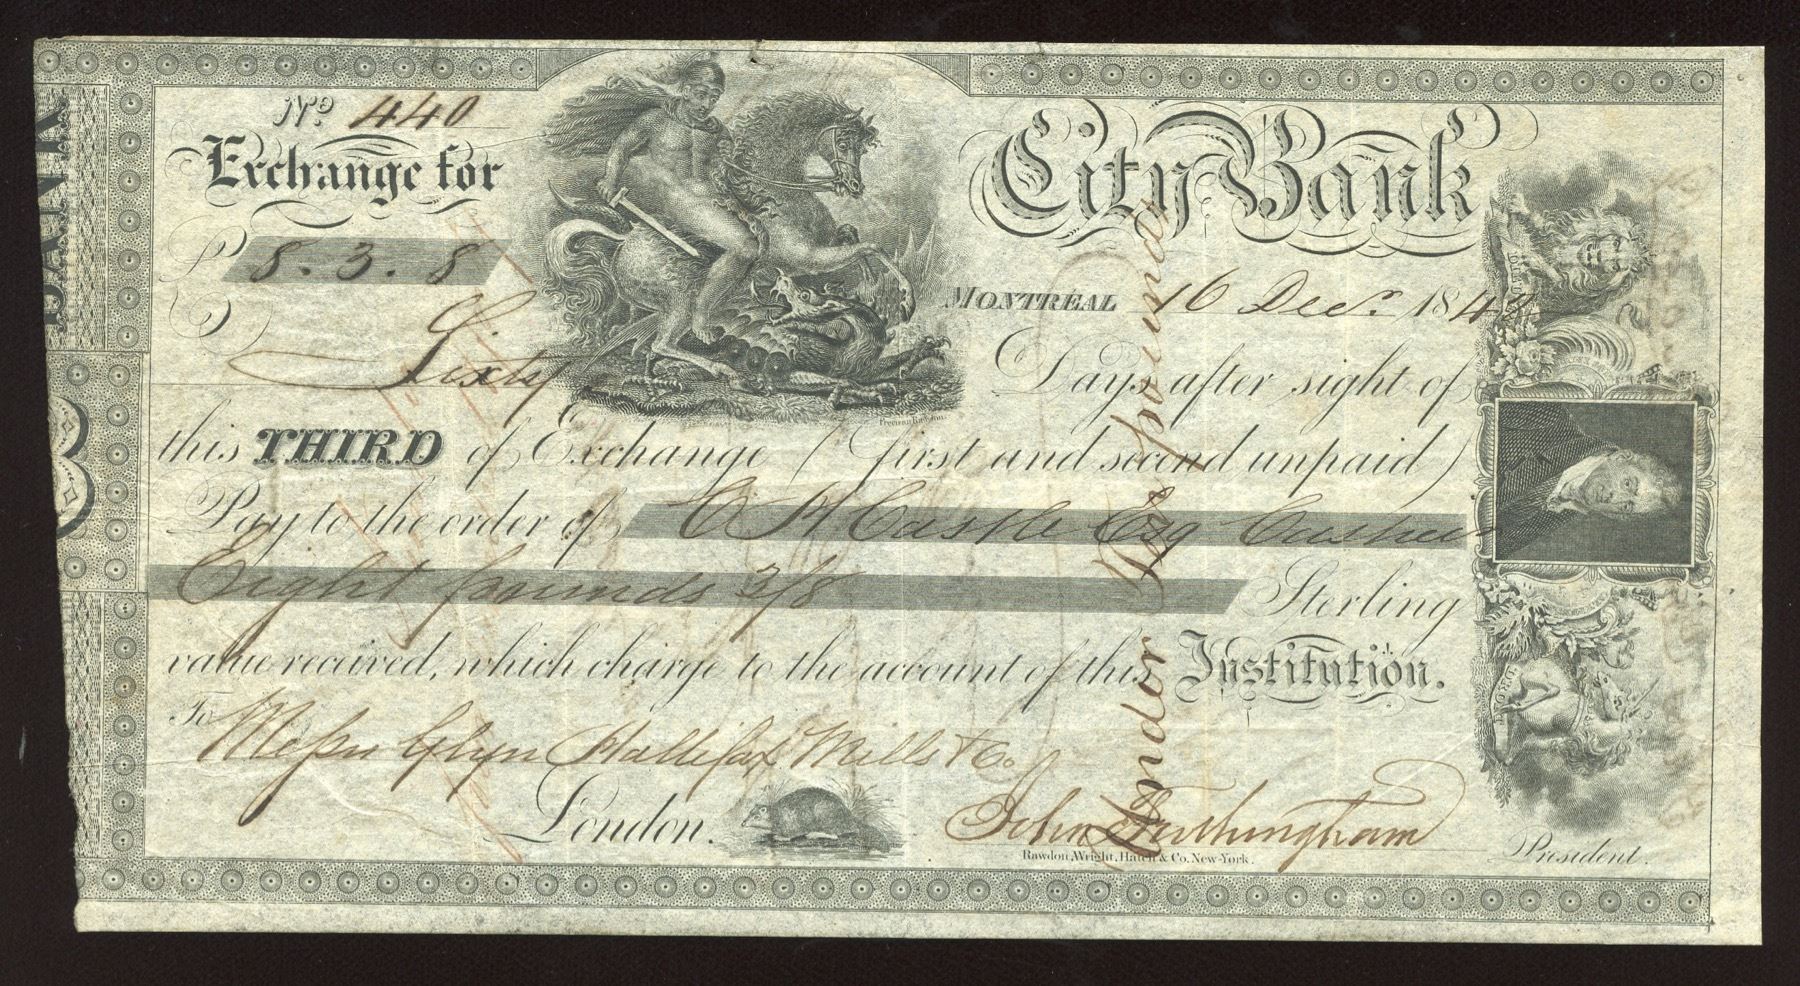 No. 440
Exchange for
City Bank
£ 8.3.8
MONTREAL 16 Decr. 184
Sixty Days after sight of
this THIRD of Exchange (first and second unpaid)
Pay to the order of C H Castle Esq Cashier
Eight pounds 3/8 Sterling
value received, which charge to the account of this Institution.
To Messrs Glyn Hallifax Mills & Co.
London.
John Frothingham
President.
Rawdon, Wright, Hatch & Co. New-York.
Under Ten pounds
BANK